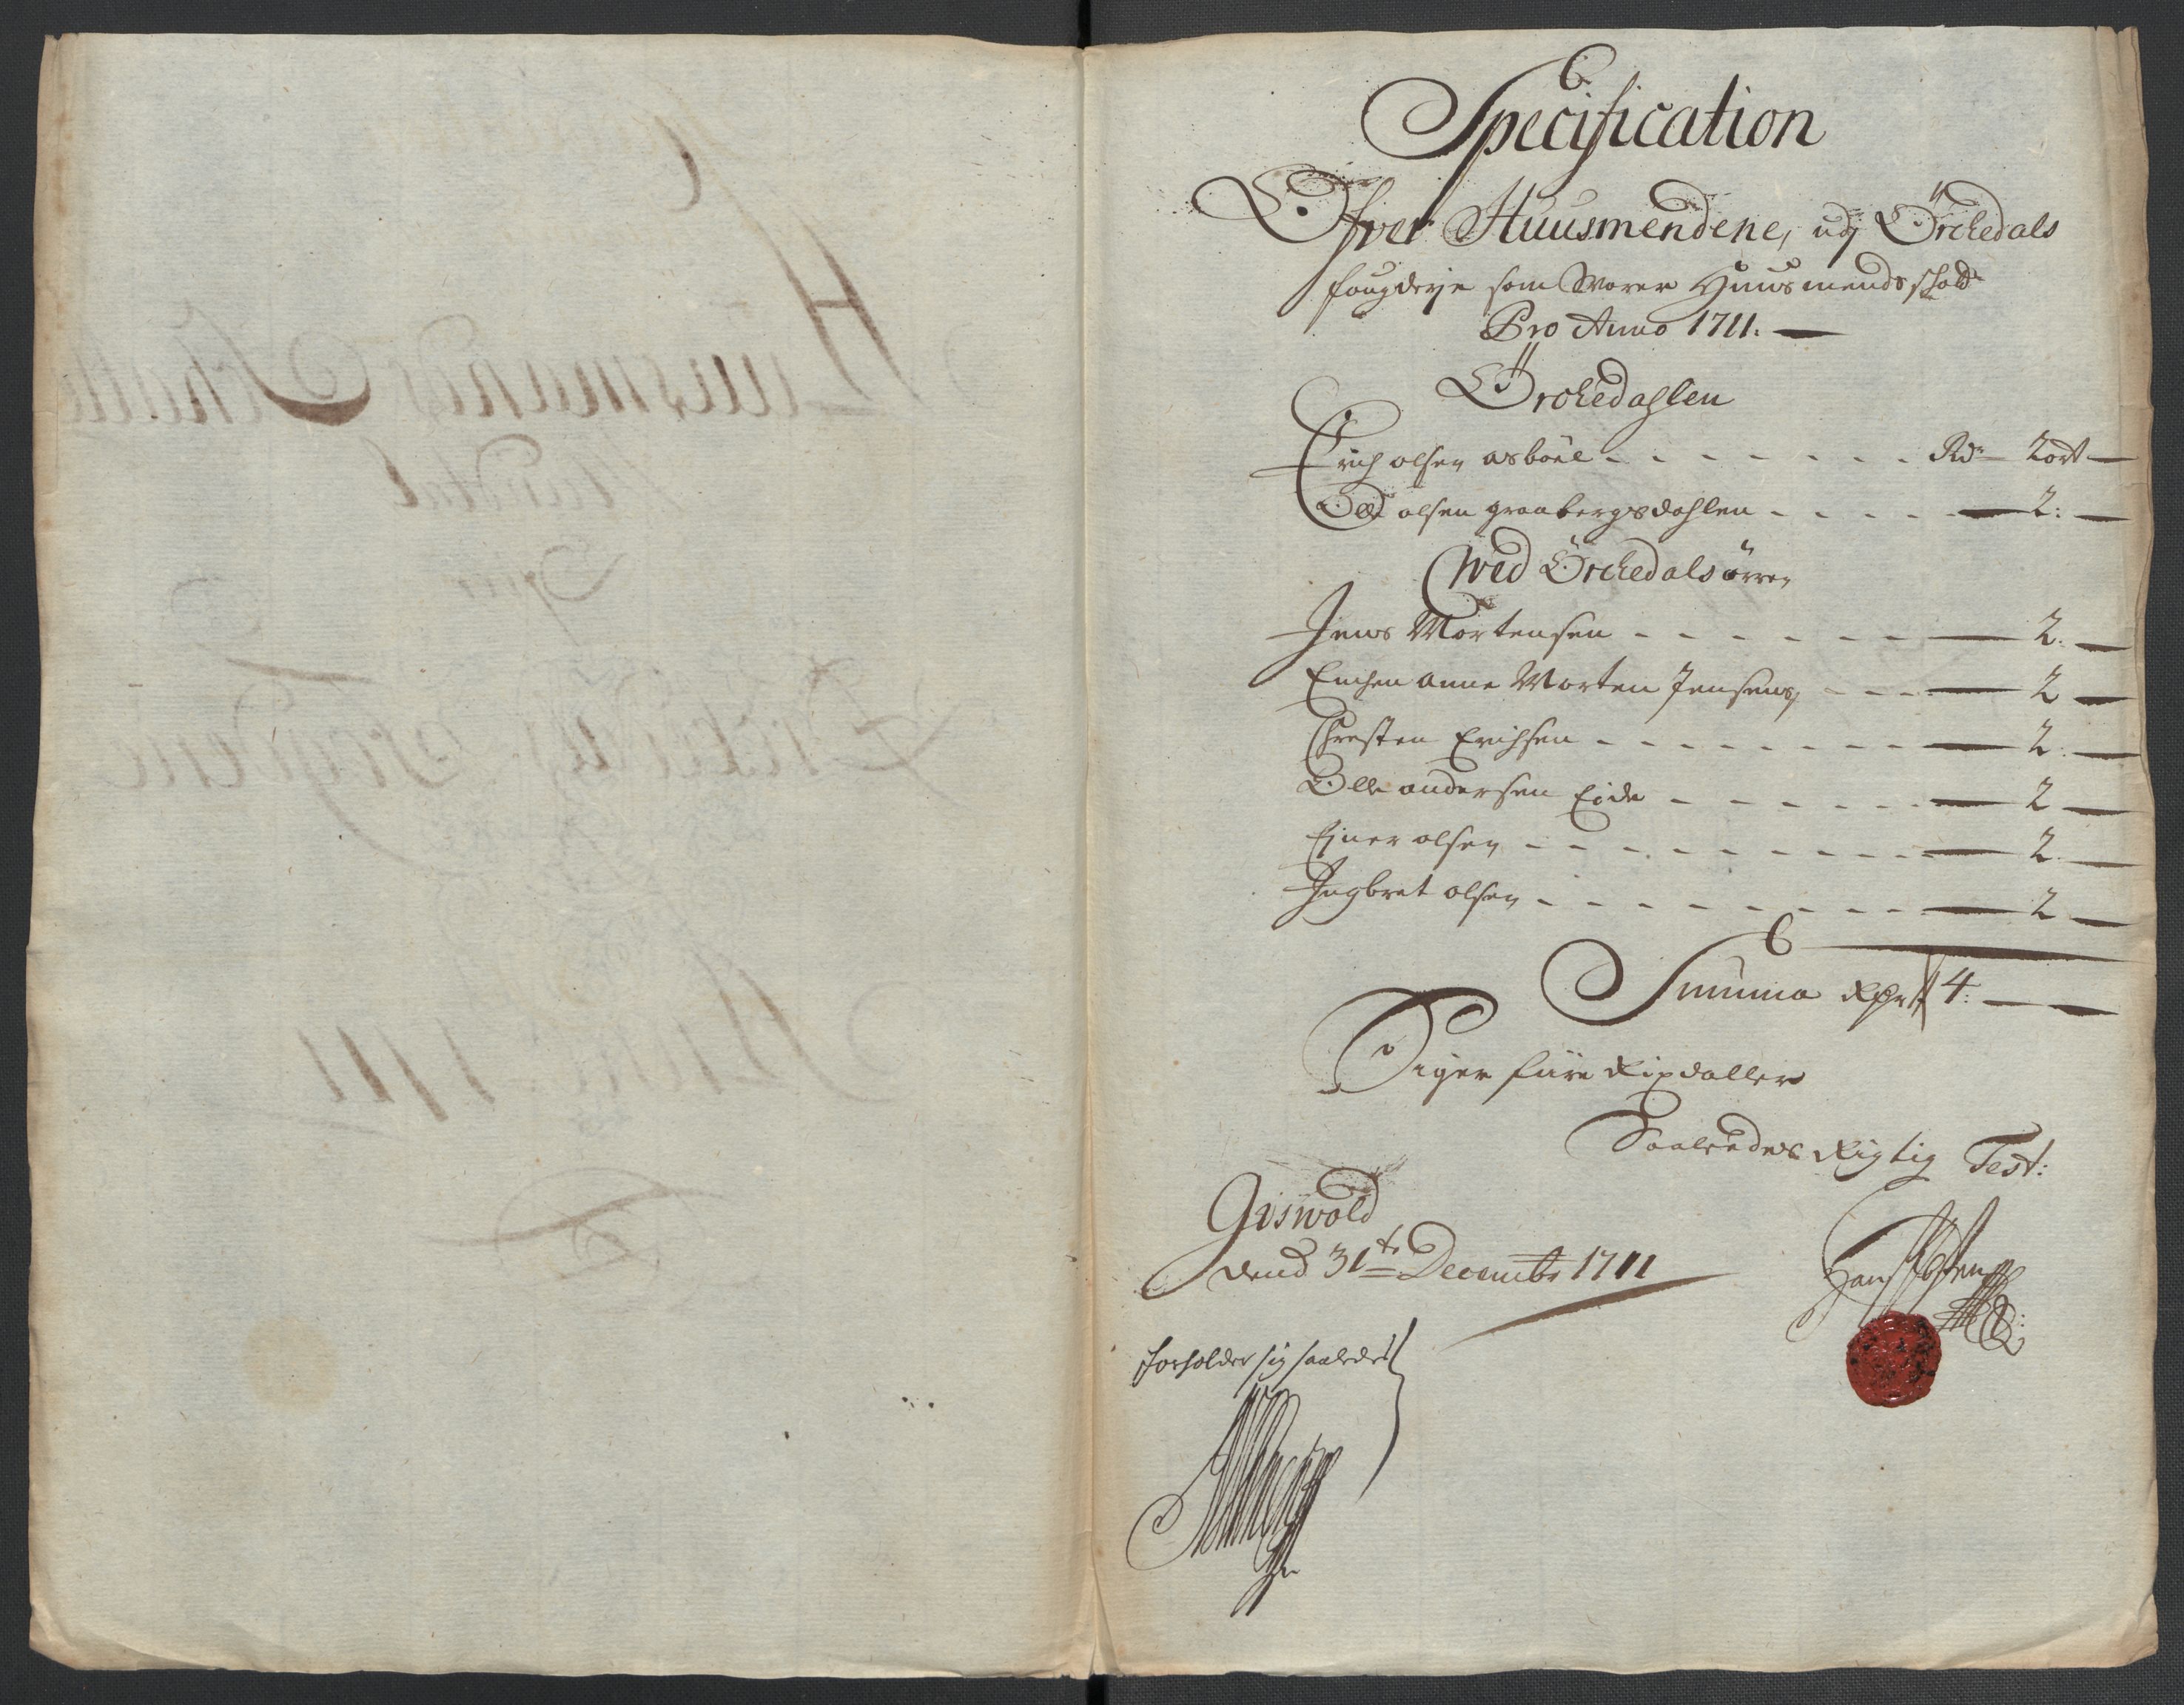 Specification
Ofver Huusmendene, udj Örchedals
fougderje som Svarer Huusmands skatt
Pro Anno 1711.
Örchedahlen
Erich olsen asböel - - - - - - - Rdr 2 ort
Olle olsen graabergsdahlen - - - - - 2:
Wed Örchedalsörren
Jens Mortensen - - - - - - 2.
Enchen anne Morten Jensens, - - - 2
Christen Erichsen - - - - - - - 2.
Olle andersen Eide - - - - - - 2
Ejner olsen - - - - - - - - - 2.
Ingbret olsen - - - - - - - - 2
Summa 4:
Siger fiire Rixdaller
Saaleedes Rigtig Test:
Giswold
dend 31te Decembr 1711
forholder sig saaledes